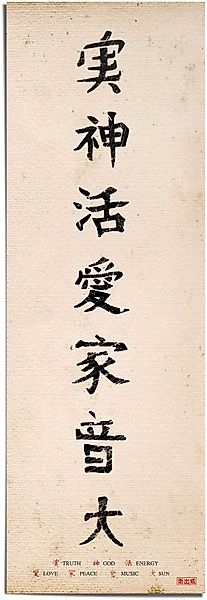 実神活愛家音大
実 TRUTH 神 GOD 活 ENERGY
愛 LOVE 家 PEACE 音 MUSIC 大 SUN